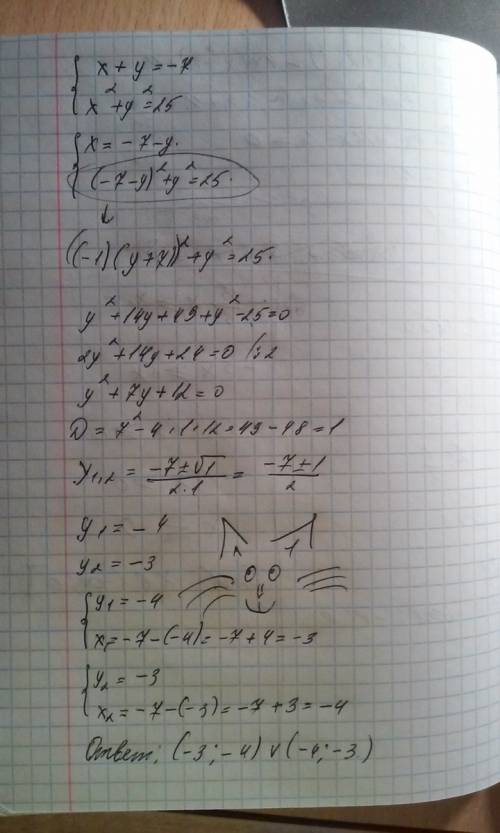 x + y = -7
x² + y² = 25
x = -7-y.
(-7-y)² + y² = 25.
((-1)(y+7))² + y² = 25.
y² + 14y + 49 + y² - 25 = 0
2y² + 14y + 24 = 0 /:2
y² + 7y + 12 = 0
D = 7² - 4·1·12 = 49 - 48 = 1
y₁,₂ = (-7±√1)/(2·1) = (-7±1)/2
y₁ = -4
y₂ = -3
y₁ = -4
x₁ = -7-(-4) = -7+4 = -3
y₂ = -3
x₂ = -7-(-3) = -7+3 = -4
Ответ: (-3; -4) v (-4; -3)